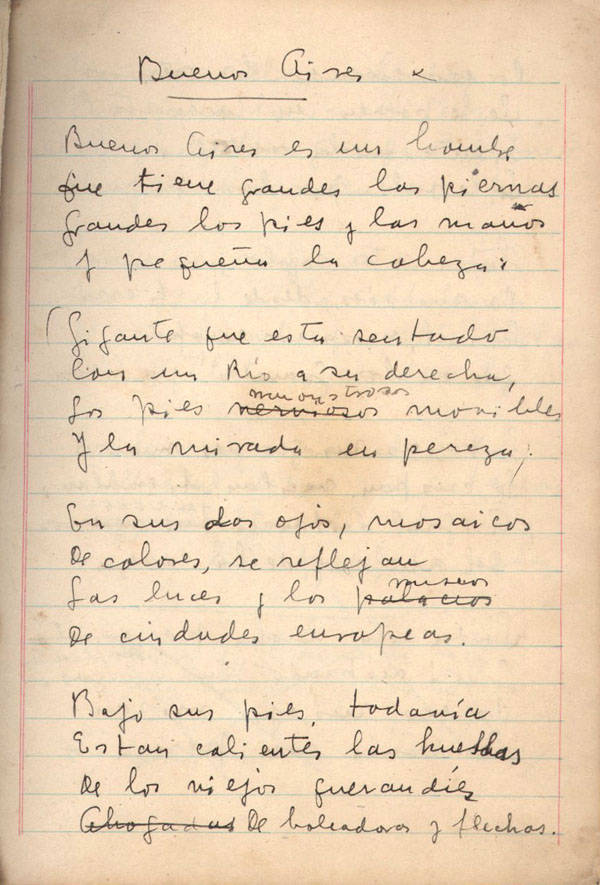 Buenos Aires x
Buenos Aires es un hombre
que tiene grandes las piernas
Grandes los pies y las manos
Y pequeña la cabeza:
(Gigante que está sentado
Con un Río a su derecha,
monstrosos
Los pies nerviosos movibles
Y la mirada en pereza;
En sus dos ojos, mosaicos
De colores, se reflejan
museos
Las luces y los palacios
De ciudades europeas.
Bajo sus pies, todavía
Estan calientes las huellas
De los viejos querandíes
Ahogadas De boleadoras y flechas.